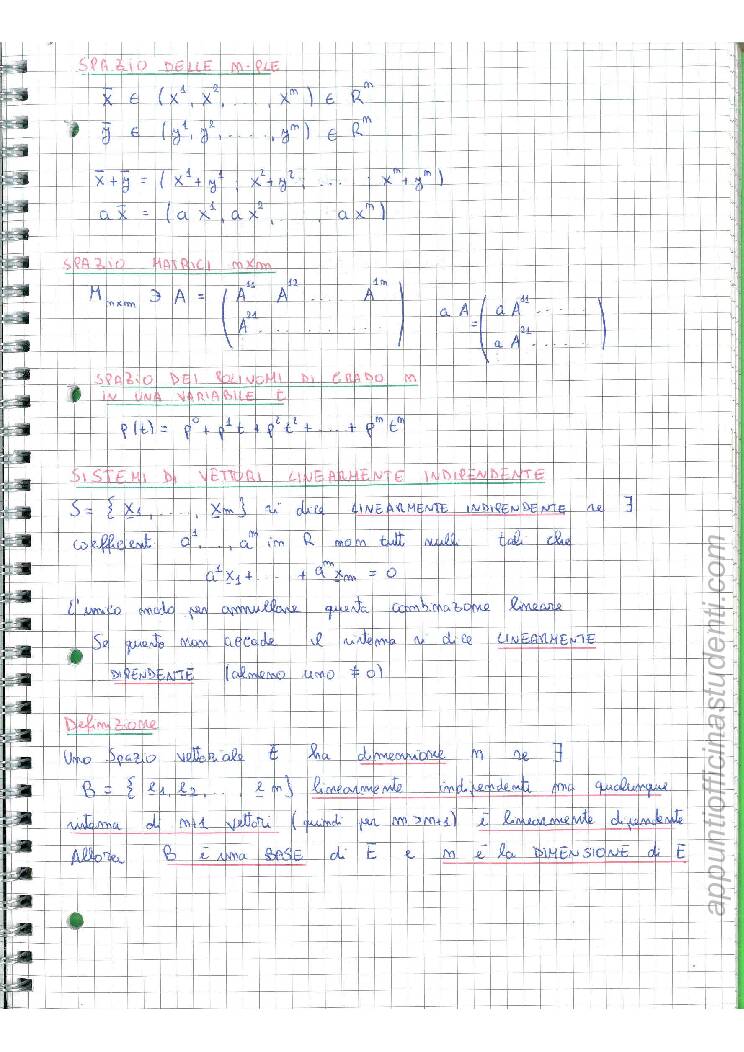 SPAZIO DELLE M-PLE
x̄ ∈ (x¹, x², ...., xᵐ) ∈ Rⁿ
ȳ ∈ (y¹, y², ....., yᵐ) ∈ Rⁿ
x̄+ȳ = (x¹+y¹, x²+y², .... , xᵐ+yᵐ)
a x̄ = (a x¹, a x², .... , a xᵐ)
SPAZIO MATRICI m×m
M m×m ∋ A = ( A¹¹ A¹² .... A¹ᵐ
A²¹ ............ )
a A = ( a A¹¹ .....
a A²¹ ..... )
SPAZIO DEI POLINOMI DI GRADO M
IN UNA VARIABILE t
p(t) = p⁰ + p¹t + p²t² + ... + pᵐtᵐ
SISTEMI DI VETTORI LINEARMENTE INDIPENDENTE
S = { x₁, ...., xm } si dice LINEARMENTE INDIPENDENTE se ∃
coefficienti a¹, ..., aᵐ in R non tutti nulli tali che
a¹x₁ + ... + aᵐxm = 0
L'unico modo per annullare questa combinazione lineare
Se questo non accade il sistema si dice LINEARMENTE
DIPENDENTE (almeno uno ≠ 0)
Definizione
Uno spazio vettoriale E ha dimensione n se ∃
B = { e1, e2, ..., e n } linearmente indipendenti ma qualunque
sistema di n+1 vettori (quindi per m>n+1) è linearmente dipendente
Allora B è una BASE di E e n è la DIMENSIONE di E
appuntiofficinastudenti.com